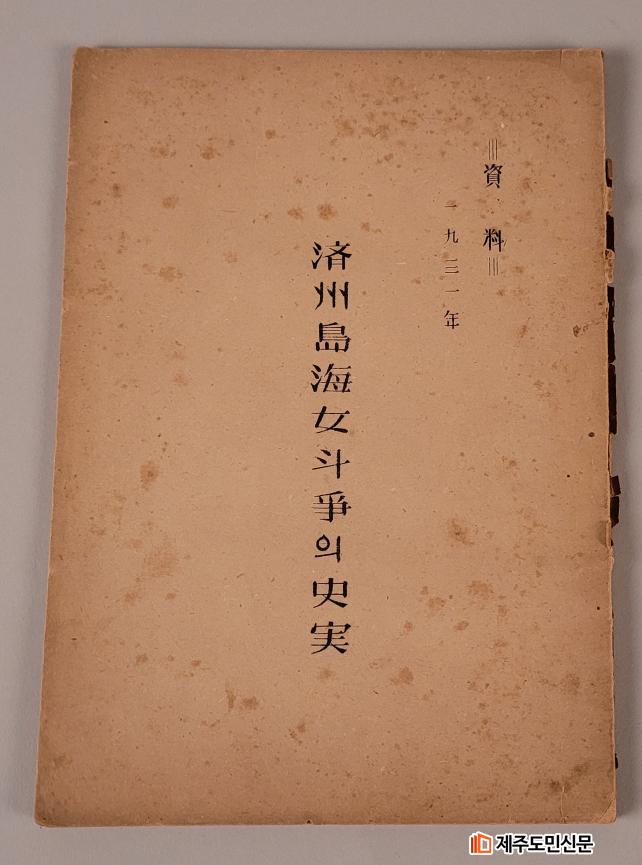 ≡資料≡
一九三一年
済州島海女斗爭의史実
제주도민신문